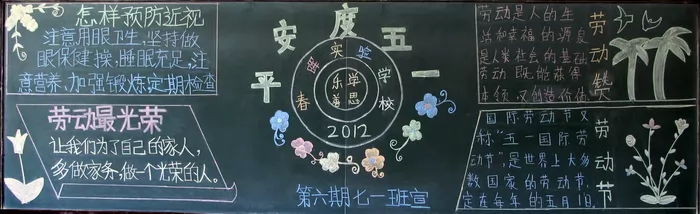 怎样预防近视
注意用眼卫生,坚持做
眼保健操,睡眠充足,注
意营养,加强锻炼,定期检查
劳动最光荣
让我们为了自己的家人,
多做家务,做一个光荣的人。
平安度五一
春晖实验学校
乐学
善思
2012
第六期七一班宣
劳动赞
劳动是人的生
活和幸福的源泉
是人类社会的基础
劳动既能获得
本领,又创造价值
劳动节
国际劳动节又
称“五一国际劳
动节”,是世界上大多
数国家的劳动节.
定在每年的五月1日.